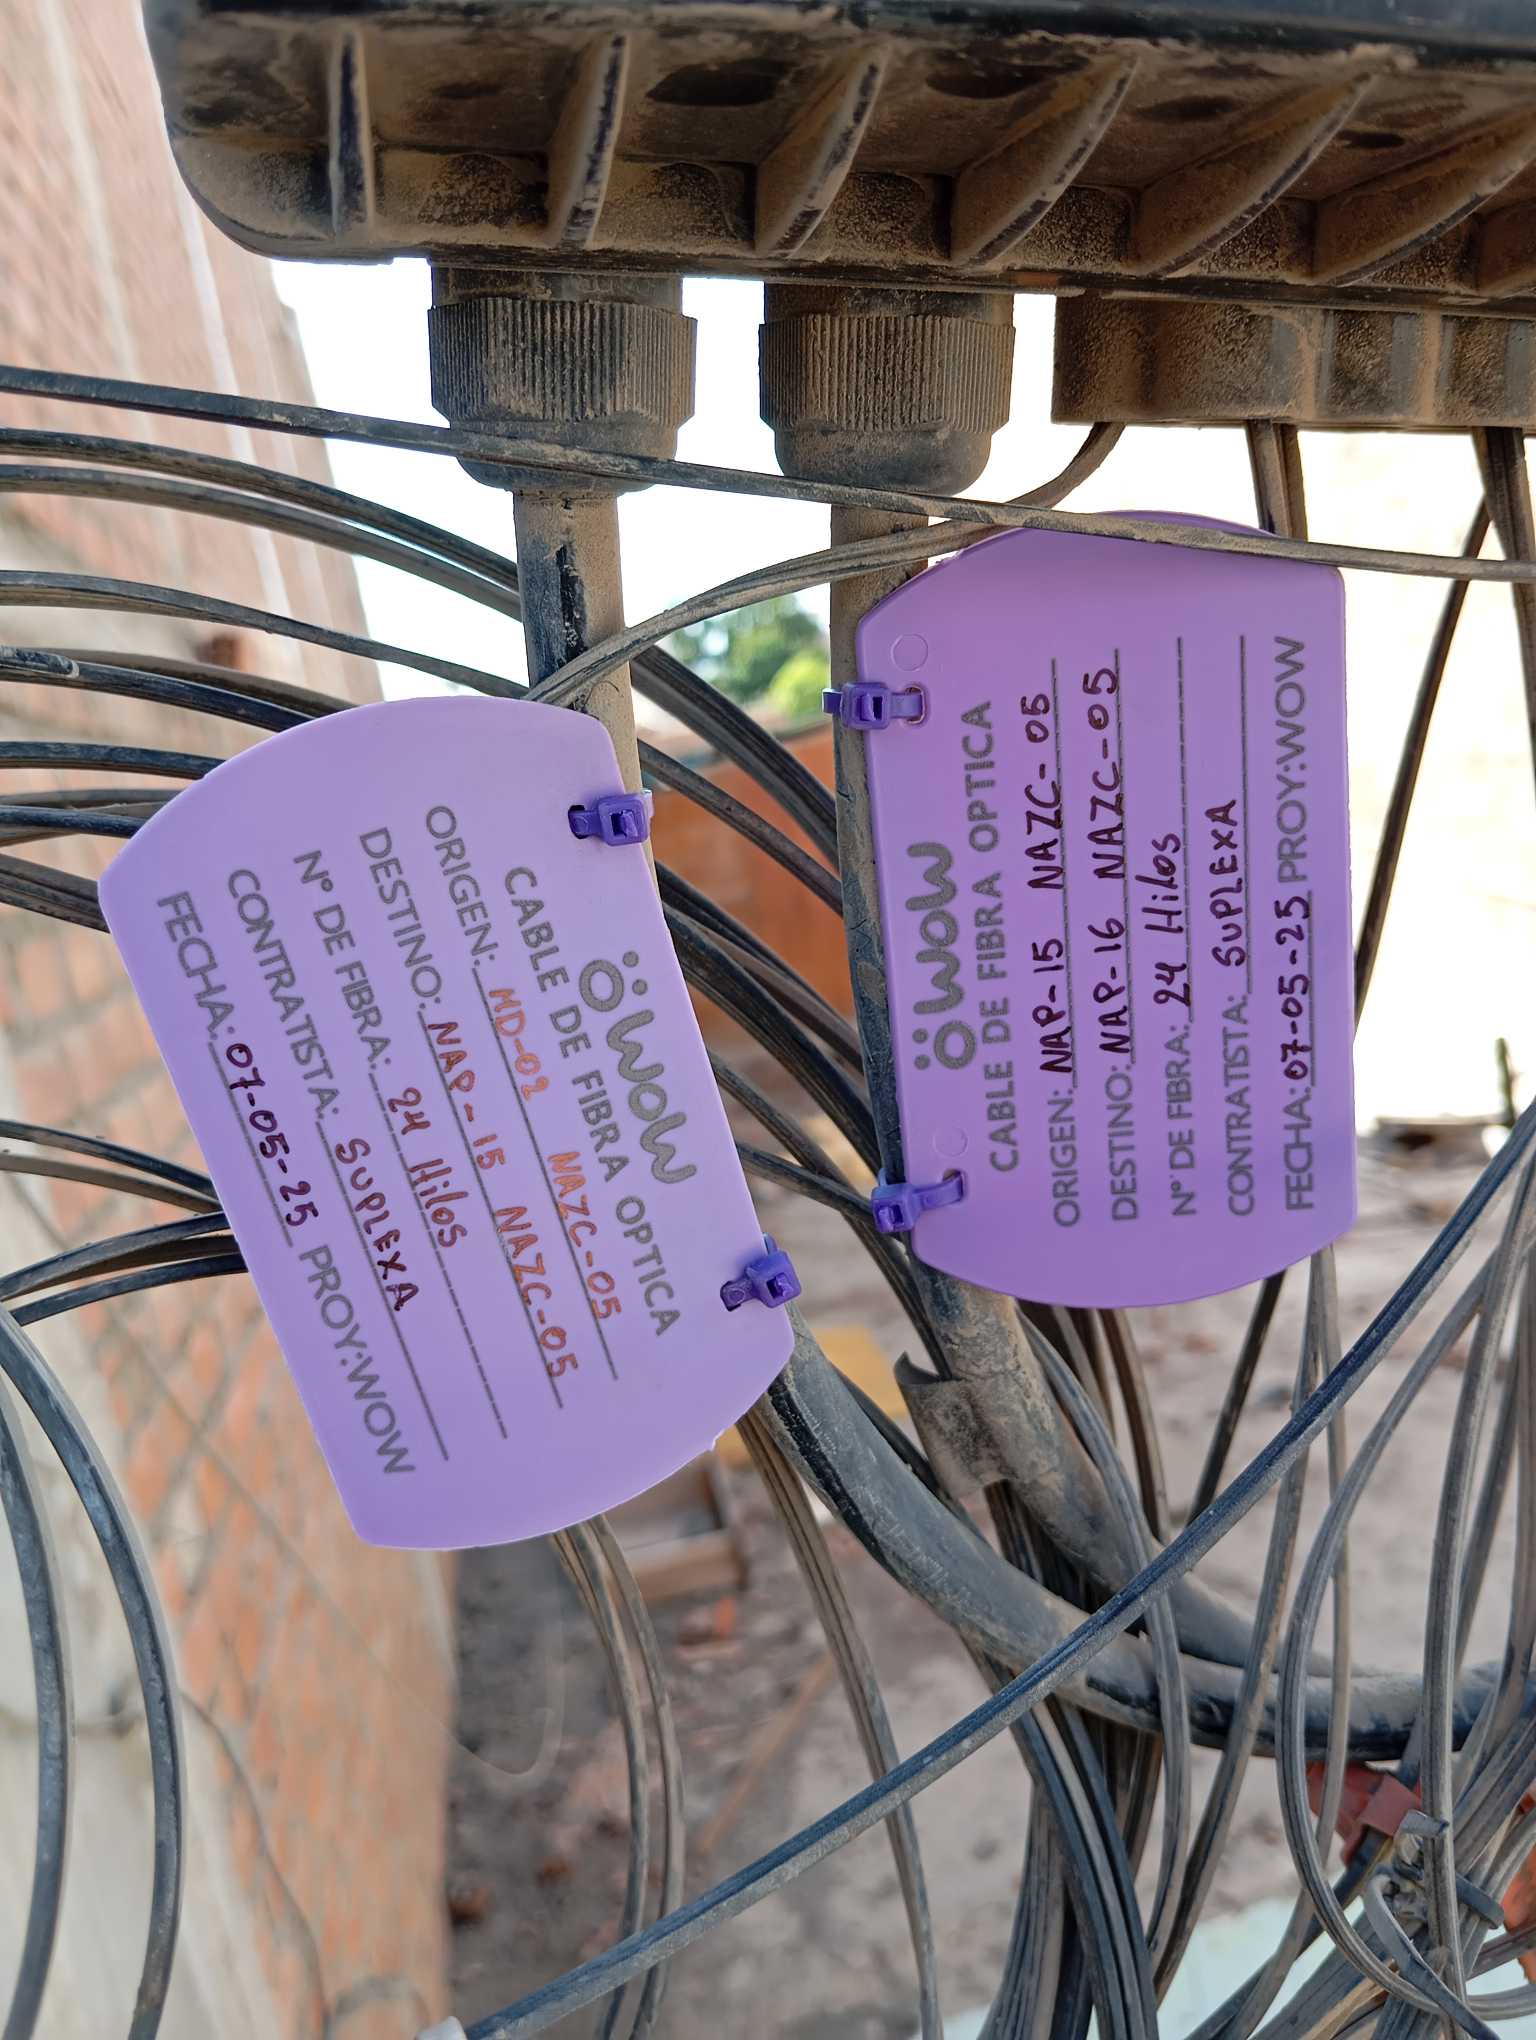 öwow
CABLE DE FIBRA OPTICA
ORIGEN: MD-02 NAZC-05
DESTINO: NAP-15 NAZC-05
N° DE FIBRA: 24 Hilos
CONTRATISTA: SUPLEXA
FECHA: 07-05-25 PROY:WOW
öwow
CABLE DE FIBRA OPTICA
ORIGEN: NAP-15 NAZC-05
DESTINO: NAP-16 NAZC-05
N° DE FIBRA: 24 Hilos
CONTRATISTA: SUPLEXA
FECHA: 07-05-25 PROY:WOW